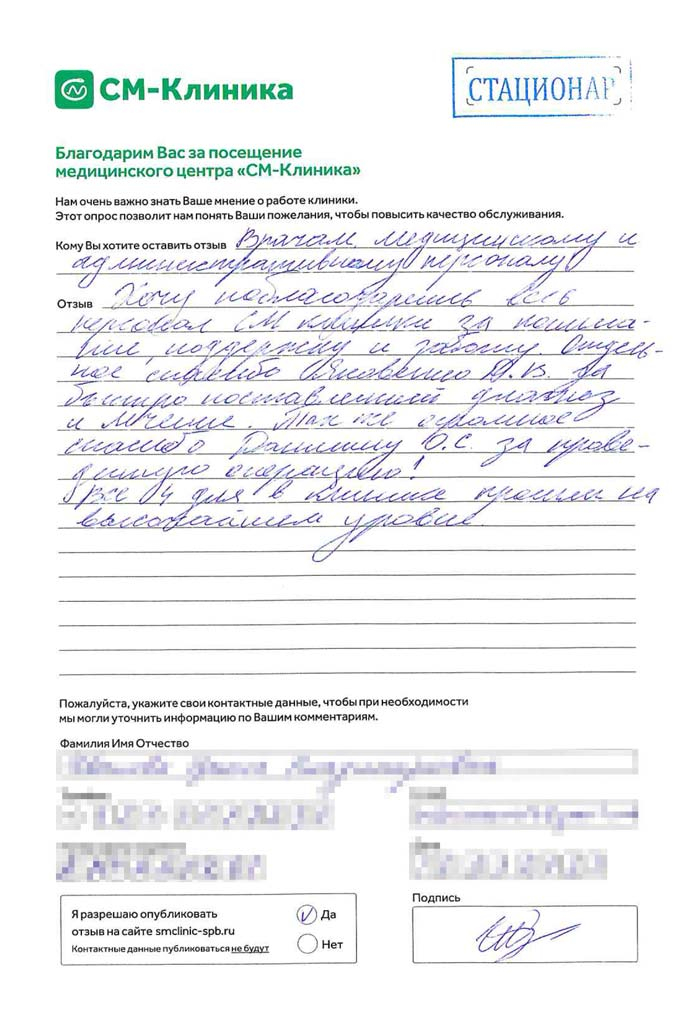 СМ-Клиника
СТАЦИОНАР
Благодарим Вас за посещение
медицинского центра «СМ-Клиника»
Нам очень важно знать Ваше мнение о работе клиники.
Этот опрос позволит нам понять Ваши пожелания, чтобы повысить качество обслуживания.
Кому Вы хотите оставить отзыв Врачам, медицинскому и
административному персоналу
Отзыв Хочу поблагодарить весь
персонал СМ клиники за понима-
ние, поддержку и заботу. Отдель-
ное спасибо Яковенко Д.В. за
быстро поставленный диагноз
и лечение. Так же огромное
спасибо Данилину О.С. за прове-
дённую операцию!
Все 4 дня в клинике прошли на
высочайшем уровне.
Пожалуйста, укажите свои контактные данные, чтобы при необходимости
мы могли уточнить информацию по Вашим комментариям.
Фамилия Имя Отчество
Я разрешаю опубликовать
отзыв на сайте smclinic-spb.ru
Контактные данные публиковаться не будут
Да
Нет
Подпись